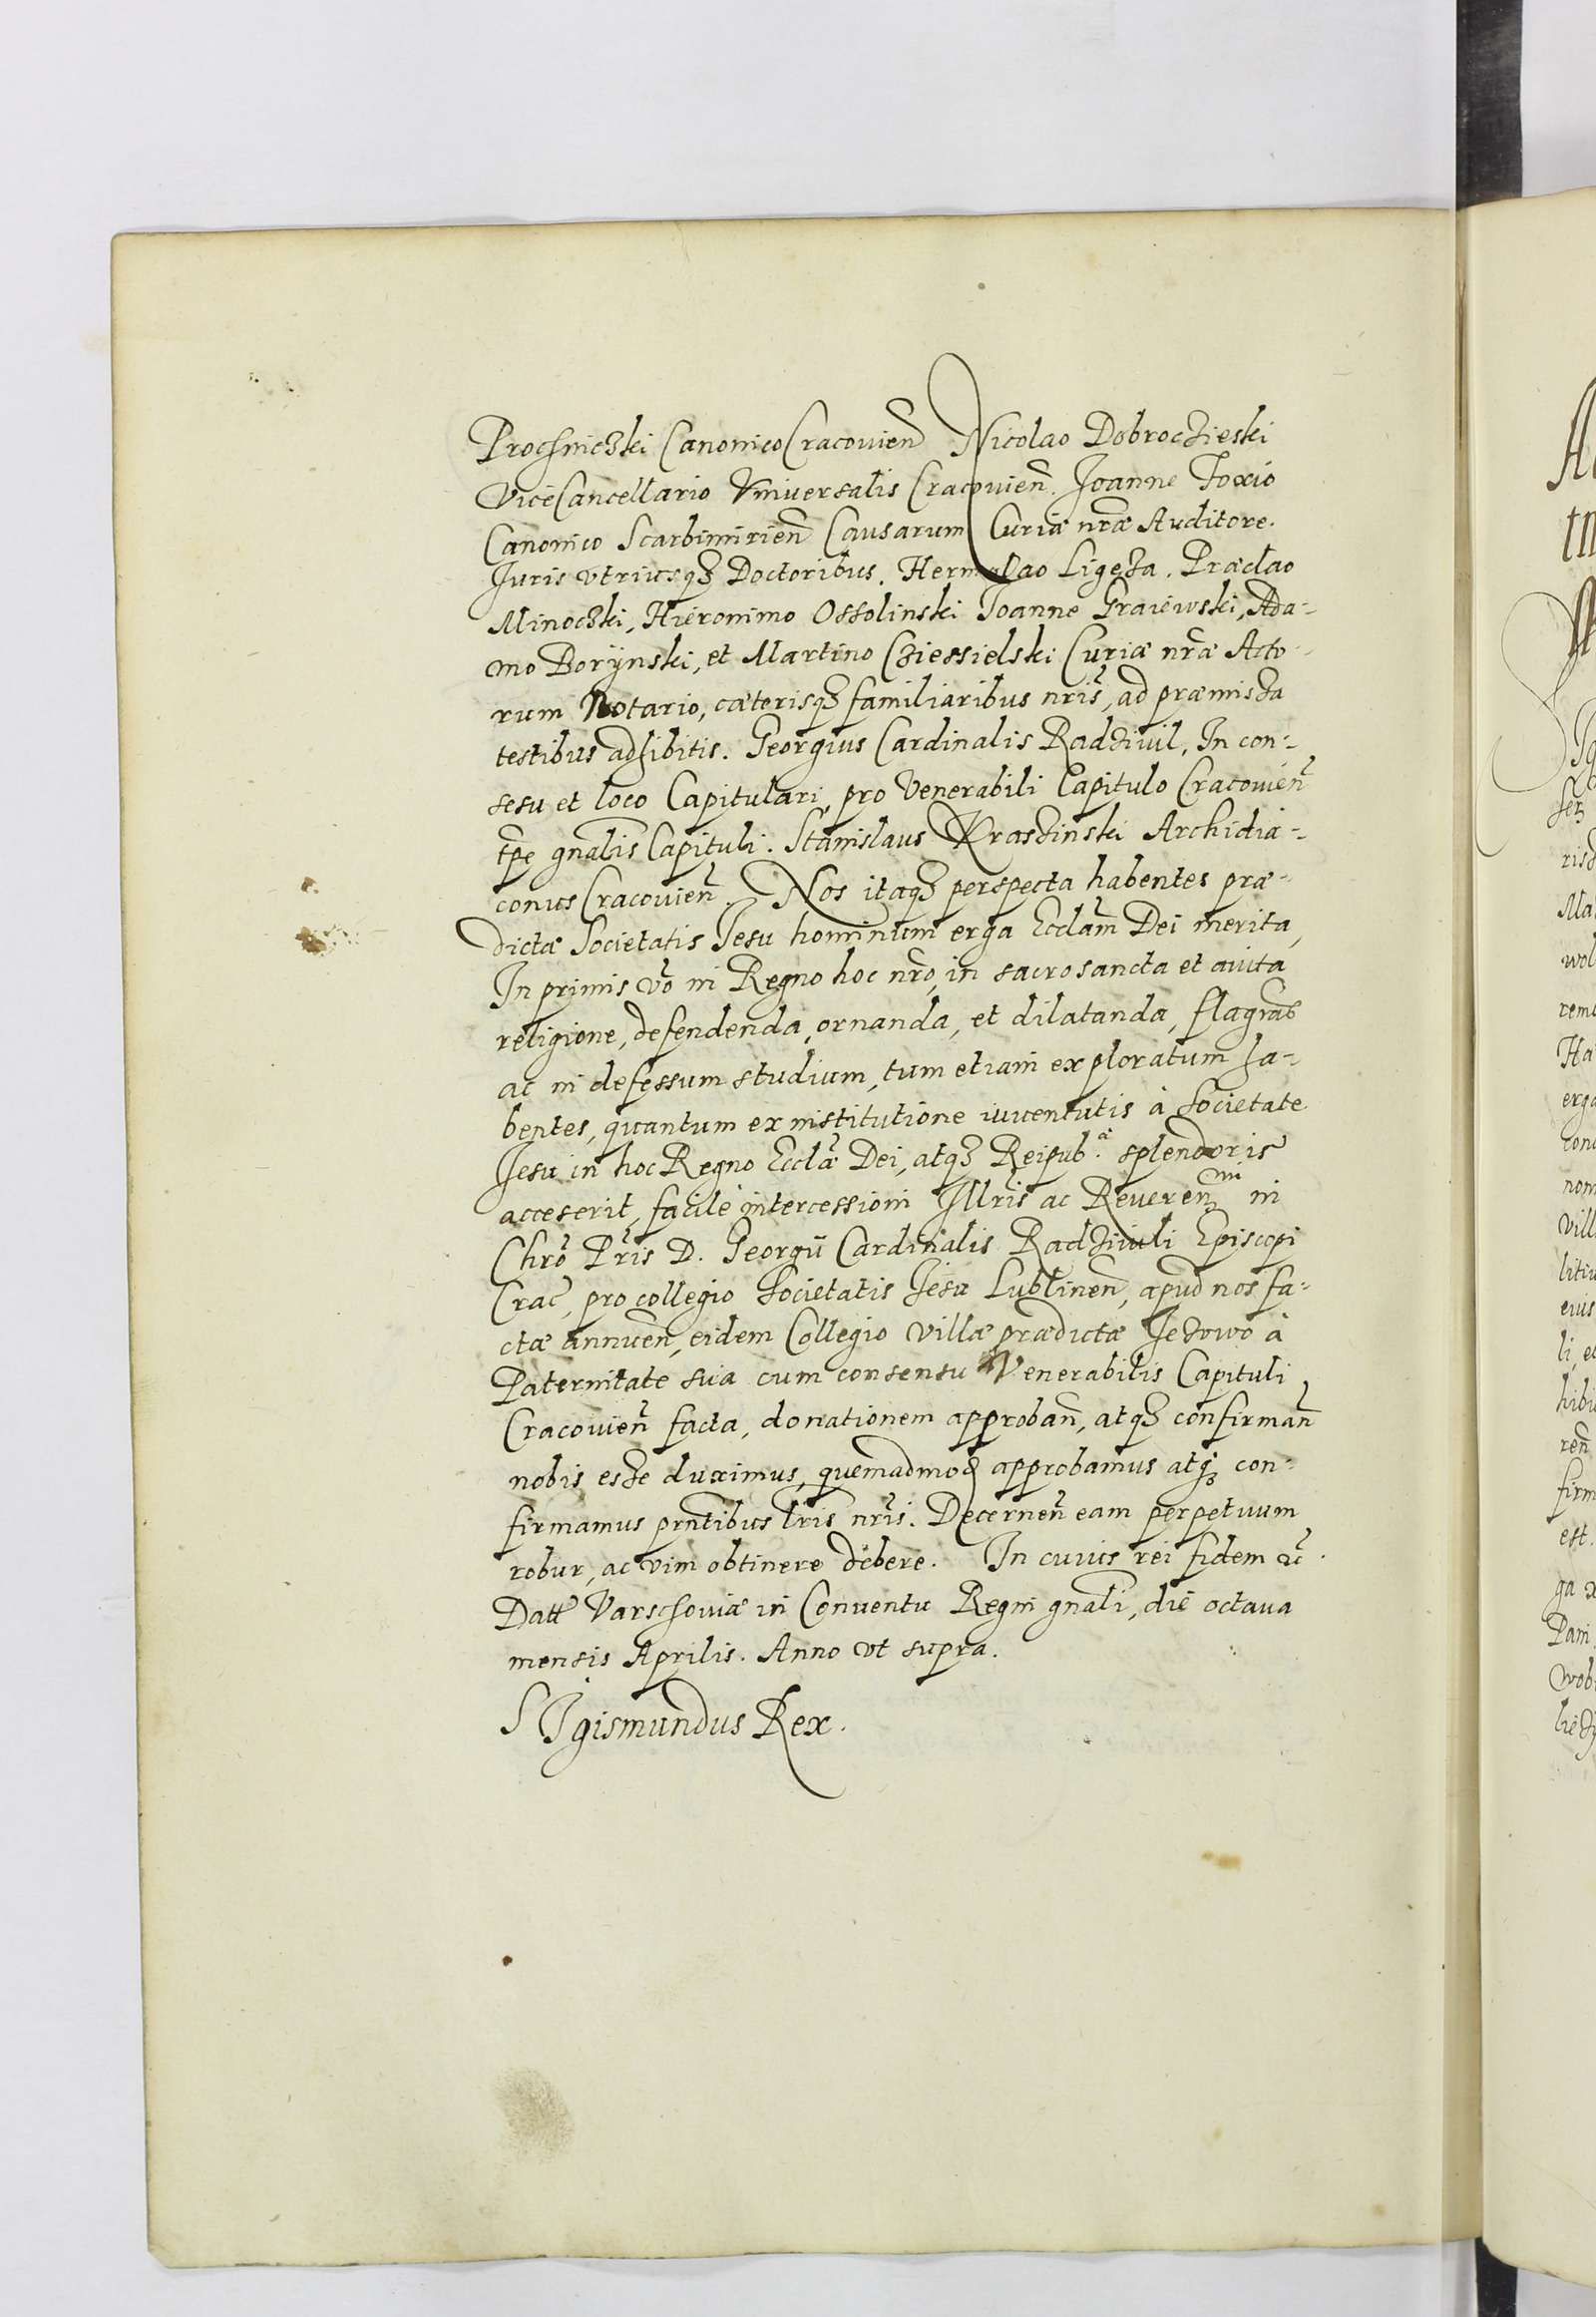 Prochniczki Canonico Cracovien̄ Nicolao Dobroczieski
Vice Cancellario Vniversalis Cracovien̄. Joanne Foxio
Canonico Scarbimirien̄ Causarum Curiæ nr̄æ Auditore.
Juris vtriusqȝ Doctoribus. Hermolao Ligeza. Præclao
Minoczki, Hieronimo Ossolinski Joanne Graiewski, Ada-
mo Borÿnski, et Martino Cziessielski Curiæ nr̄æ Acto-
rum Notario, cæterisqȝ familiaribus nr̄is, ad præmissa
testibus adhibitis. Georgius Cardinalis Radziuil, In con-
sesu et loco Capitulari, pro Venerabili Capitulo Cracouien̄
tp̄e gnālis Capituli. Stanislaus Krasinski Archidia-
conus Cracouien̄. Nos itaqȝ perspecta habentes præ-
dictæ Societatis Jesu hominum erga Eccl̄am Dei merita,
In primis vō in Regno hoc nr̄o, in sacrosancta et auita
religione, defendenda, ornanda, et dilatanda, flagrās
ac in defessum studium, tum etiam exploratum ha-
bentes, quantum ex institutione iuuentutis à Societate
Jesu in hoc Regno Eccl̄æ Dei, atqȝ Reipub.ᵃᵉ splendoris
acceserit, facile intercessioni Jllr̄is ac Reueren̄ᵐⁱ in
Chrō Pr̄is D. Georgii Cardinalis Radziuili Episcopi
Crac̄, pro collegio Societatis Jesu Lublinen̄, apud nos fa-
ctæ annuen̄, eidem Collegio villæ prædictæ Jezowo à
Paternitate sua cum consensu Venerabilis Capituli
Cracouien̄ facta, donationem approban̄, atqȝ confirman̄
nobis esse duximus, quemadmod̄ approbamus atqȝ con-
firmamus prn̄tibus lr̄is nr̄is. Decernen̄ eam perpetuum
robur, ac vim obtinere debere. In cuius rei fidem &c̄.
Datt Varschouiæ in Conuentu Regni gnāli, die octaua
mensis Aprilis. Anno vt supra.
SIgismundus Rex.